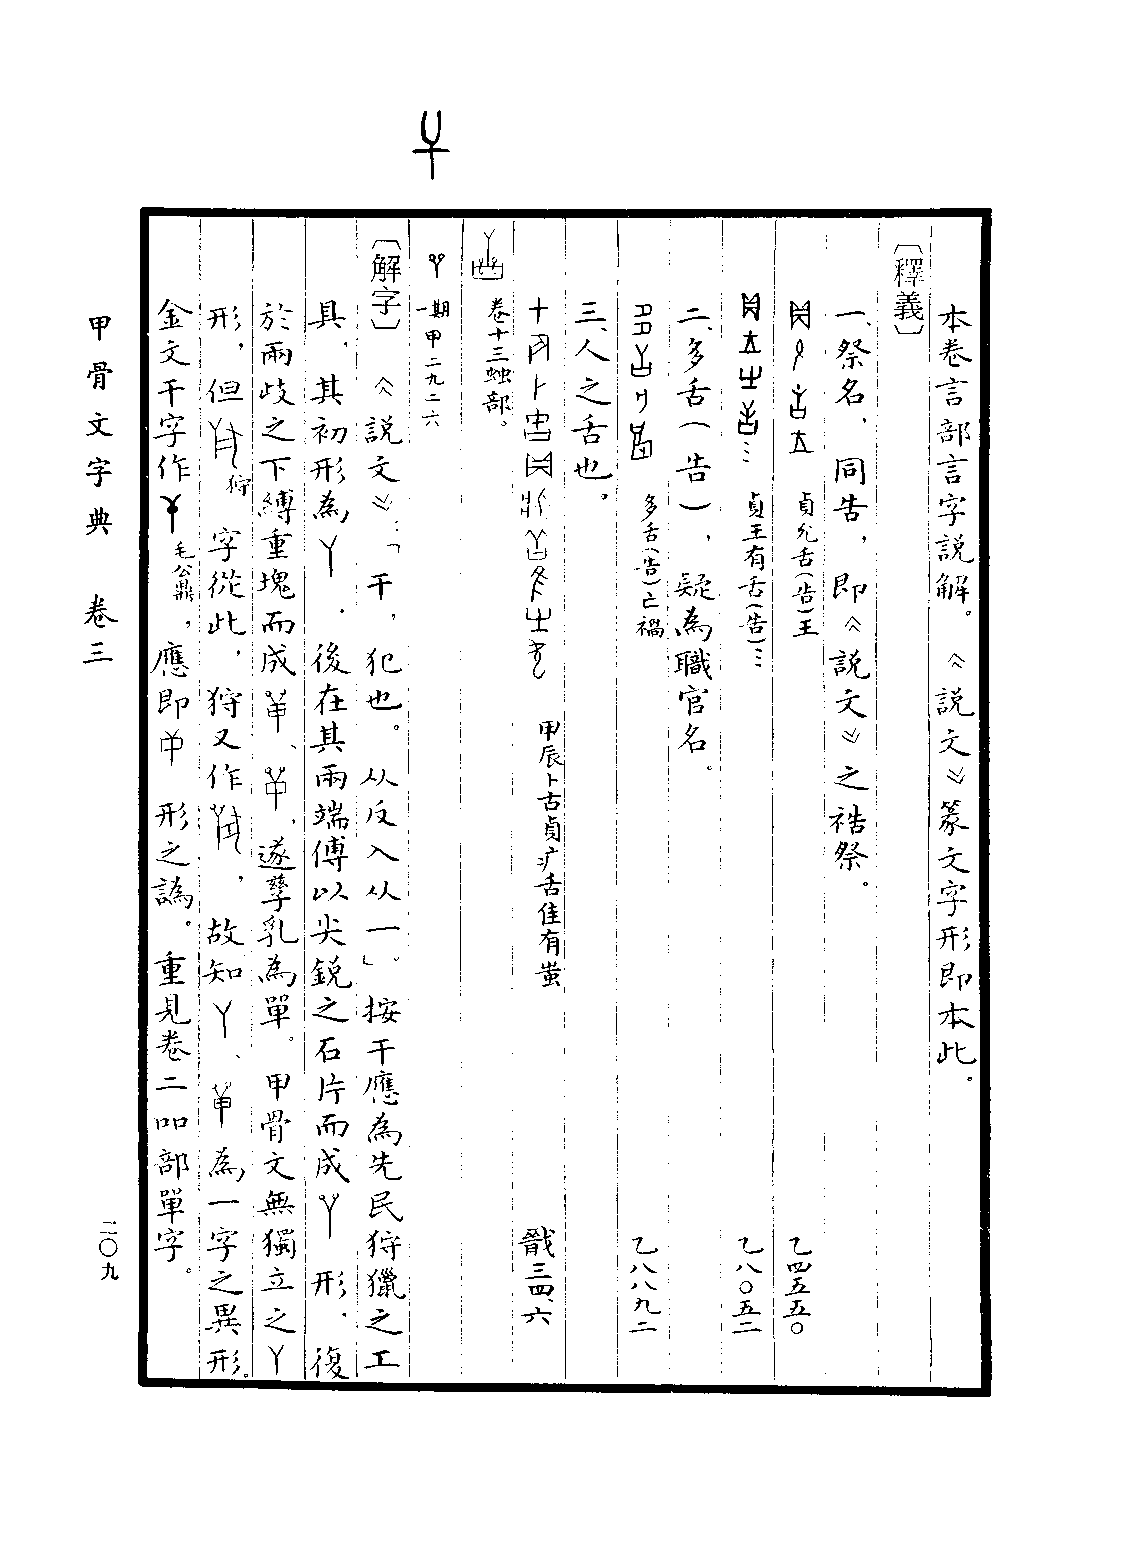 本卷言部言字説解。《説文》篆文字形即本此。
〔釋義〕
一、祭名，同告，即《説文》之祰祭。
貞允舌(告)王 乙四五五〇
貞王有舌(告)… 乙八〇五二
二、多舌(告)，疑為職官名。
多舌(告)亡禍 乙八八九二
三、人之舌也。
甲辰卜古貞疒舌隹有蚩 戩三四、六
卷十三䖵部。
一期 甲二九二六
〔解字〕《説文》：「干，犯也。从反入从一」。按干應為先民狩獵之工
具，其初形為丫，後在其兩端傅以尖鋭之石片而成 形，復
於兩歧之下縛重塊而成 、 ，遂孳乳為單。甲骨文無獨立之丫
形，但 狩 字從此，狩又作 ，故知丫、 為一字之異形。
金文干字作 毛公鼎，應即 形之譌。重見卷二吅部單字。
甲骨文字典 卷三
二〇九